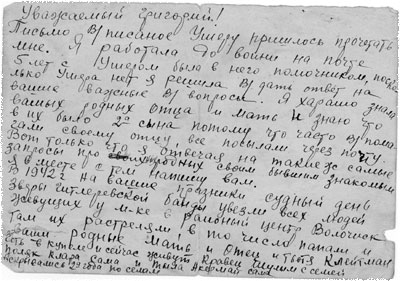 Уважаемый Григорий!
Письмо В/ писаное Умеру пришлось прочетать
мне. Я работала до войни на почте
5 лет с Умером была в него помочником, поско
лько Умера нет я решила В/ дать ответ на
вашие важные В/ вопросы. Я харашо знала
вашых родных отца и мать и знаю что
в их было 2° сына потому что часто В/ пома
гали своему отцу, все посылали через почту.
Вот только что я отвечая на такие ж самые
запросы про своим бывшим знакомым
Я в месте с тем напишу вам.
В 1942г на вашие празники судный день
Зверы гитлеревской банды увезли всех людей
живущих у м-ке в районый центр Волочиск
там их растреляли в то число папам и
вашим родные мать и Отец и тьотя Клейтман
есть в купели и сейчас живут Кравец Шулим с семей
Поляк Клара сама и Тыза Акерман сама